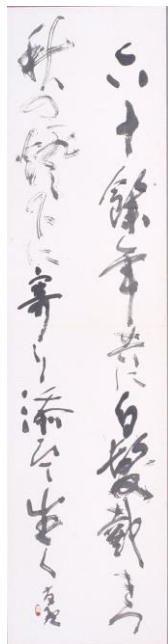 六十餘年共に白髪戴きつ
秋の燈下に寄り添ひて生く